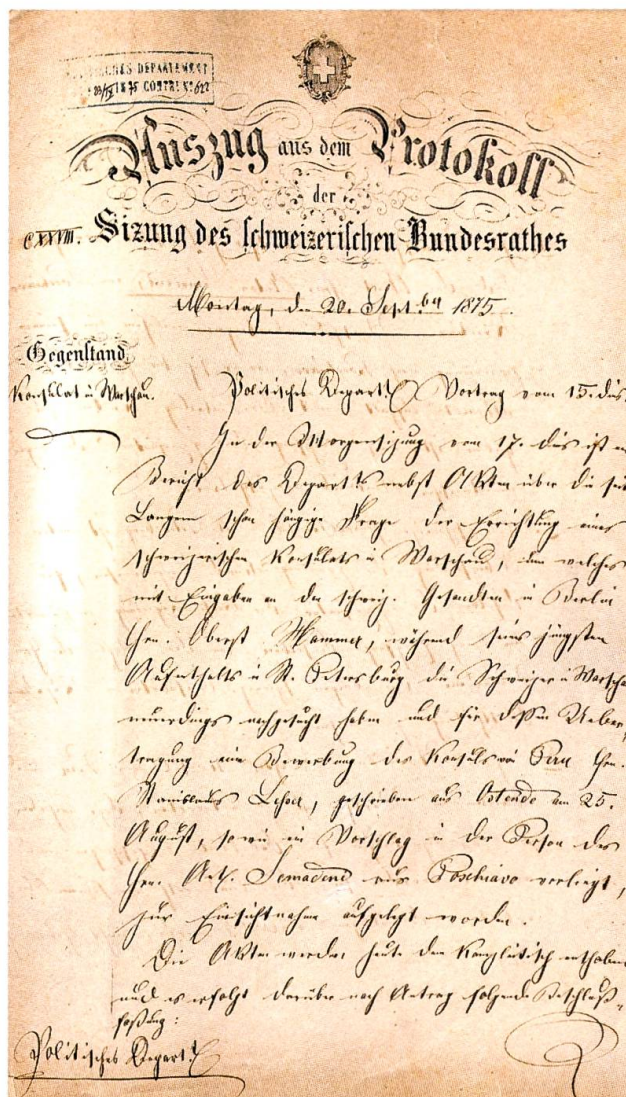 SCHES DEPARTEMENT
1875 CONTRL No 622
Auszug aus dem Protokoll
der
CXXVIII. Sizung des schweizerischen Bundesrathes
Montag, den 20. Septber 1875.
Gegenstand
Konsulat in Warschau.
Politisches Departt. Vortrag vom 15. dies.
In der Morgensizung vom 17. dies ist ein
Bericht des Departts nebst Akten über die seit
Langem schon hängige Frage der Errichtung eines
schweizerischen Konsulats in Warschau, um welches
mit Eingaben an den schweiz. Gesandten in Berlin
Hrn. Oberst Hammer, während seines jüngsten
Aufenthalts in St. Petersburg die Schweizer in Warschau
neuerdings nachgesucht haben und für dessen Ueber-
tragung eine Bewerbung des Konsuls von Peru Hrn.
Stanislaus Lesser, geschrieben aus Ostende am 25.
August, sowie ein Vorschlag in der Person des
Hrn. Ant. Semadeni aus Poschiavo vorliegt,
zur Einsichtnahme aufgelegt worden.
Die Akten werden heute dem Kanzleitisch enthoben
und es erfolgt darüber nach Antrag folgende Beschluß-
faßung:
Politisches Departt.